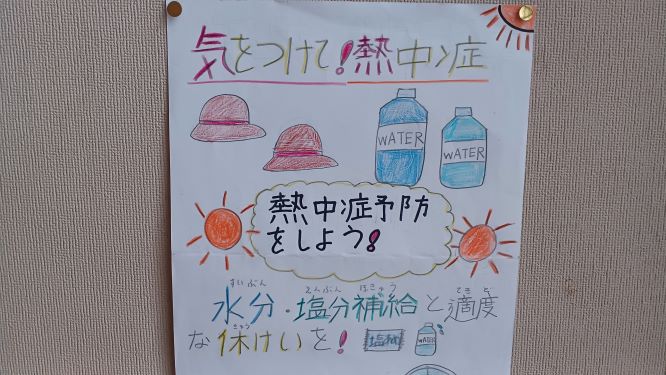 気をつけて!熱中症
WATER
WATER
熱中症予防
をしよう!
すいぶん えんぶん ほきゅう てきど
水分・塩分補給と適度
きゅう
な休けいを!
WATER